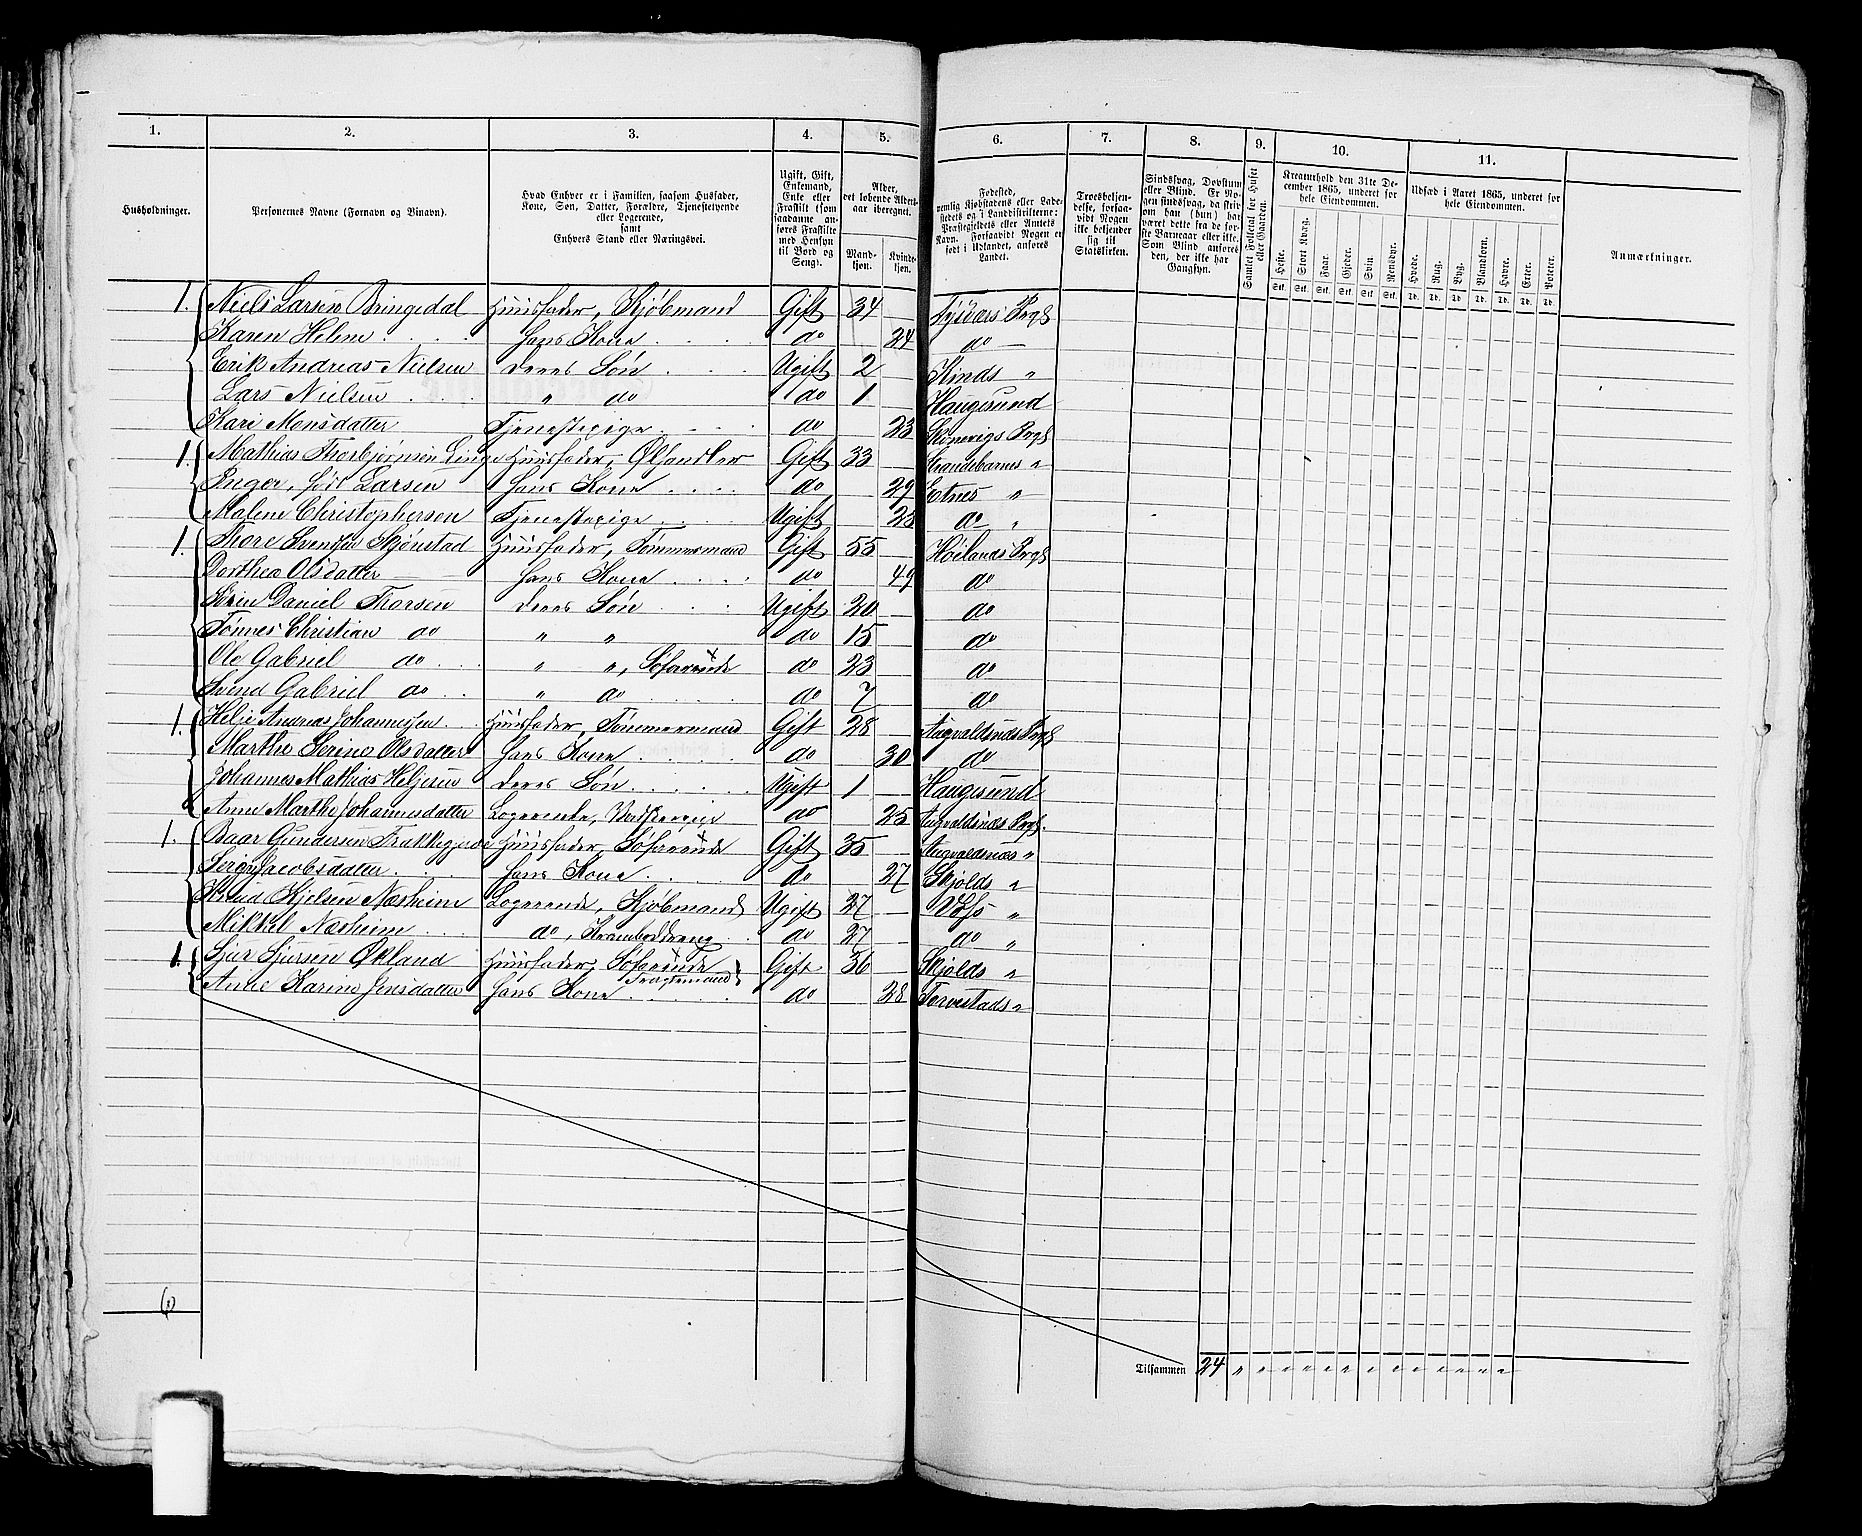 1. 2. 3. 4. 5. 6. 7. 8. 9. 10. 11.
Husholdninger.
Personernes Navne (Fornavn og Binavn).
Hvad Enhver er i Familien, saasom Husfader, Kone, Søn, Datter, Forældre, Tjenestetyende eller Logerende, samt Enhvers Stand eller Næringsvei.
Ugift, Gift, Enkemand, Enke eller Fraskilt (som saadanne anføres Fraskilte med Hensyn til Bord og Seng).
Alder, det løbende Aldersaar iberegnet.
Mandkjøn. Kvindekjøn.
Fødested, nemlig Kjøbstadens eller Ladestedets og i Landdistrikterne: Præstegjeldets eller Amtets Navn. Forsaavidt Nogen er født i Udlandet, anføres Landet.
Troesbekjendelse, forsaavidt Nogen ikke bekjender sig til Statskirken.
Sindssvag, Døvstum eller Blind. Er Nogen sindssvag, da skrives om han (hun) har været dette fra de første Barneaar eller ikke. Som Blind anføres den, der ikke har Gangsyn.
Samlet Folketal for Huset eller Gaarden.
Kreaturhold den 31te December 1865, underet for hele Eiendommen.
Heste. Stort Kvæg. Faar. Gjeder. Svin. Rensdyr.
Stk. Stk. Stk. Stk. Stk. Stk.
Udsæd i Aaret 1865, underet for hele Eiendommen.
Hvede. Rug. Byg. Blandkorn. Havre. Erter. Poteter.
Td. Td. Td. Td. Td. Td. Td.
Anmærkninger.
1. Niels Larsen Bringedal Huusfader, Kjøbmand Gift 34 Tysværs Prgd
Karen Helene hans Kone do 24 do
Erik Andreas Nielsen deres Søn Ugift 2 Skinds "
Lars Nielsen " do do 1 Haugesund
Kari Monsdatter Tjenestepige do 23 Skonevigs Prgd
1. Mathias Thorbjørnsen Linge Huusfader, Ølhandler Gift 33 Strandebarnes "
Inger, født Larsen hans Kone do 29 Etnes "
Malene Christophersen Tjenestepige Ugift 23 do "
1. Thore Svendsen Skjønstad Huusfader, Tømmermand Gift 55 Høilands Prgd
Dorthea Olsdatter hans Kone do 49 do
Sørin Daniel Thorsen deres Søn Ugift 20 do
Tønnes Christian do " " do 15 do
Ole Gabriel do " ", Søfarende do 23 do
Svend Gabriel do " do do 7 do
1. Helje Andreas Johannesen Huusfader, Tømmermand Gift 28 Augvaldsnæs Prgd
Marthe Serine Olsdatter hans Kone do 30 do
Johannes Mathias Heljesen deres Søn Ugift 1 Haugesund
Anne Marthe Johannesdatter Logerende, do 25 Augvaldsnæs Prgd.
1. Baar Gundersen Huusfader, Søfarende Gift 35 Augvaldsnæs "
Jacobsdatter hans Kone do 27 Skjolds "
Knud Kjelsen Næsheim Logerende, Kjøbmand Ugift 27 Voss "
Mikkel Næsheim do, Kramboddreng do 27 do "
1. Sjur Sjursen Økland Huusfader, Søfarende Fragtemand Gift 36 Skjolds "
Anne Karine Jensdatter hans Kone do 28 Torvestads "
6
Tilsammen 24 " " " " " " " " " " " " " "